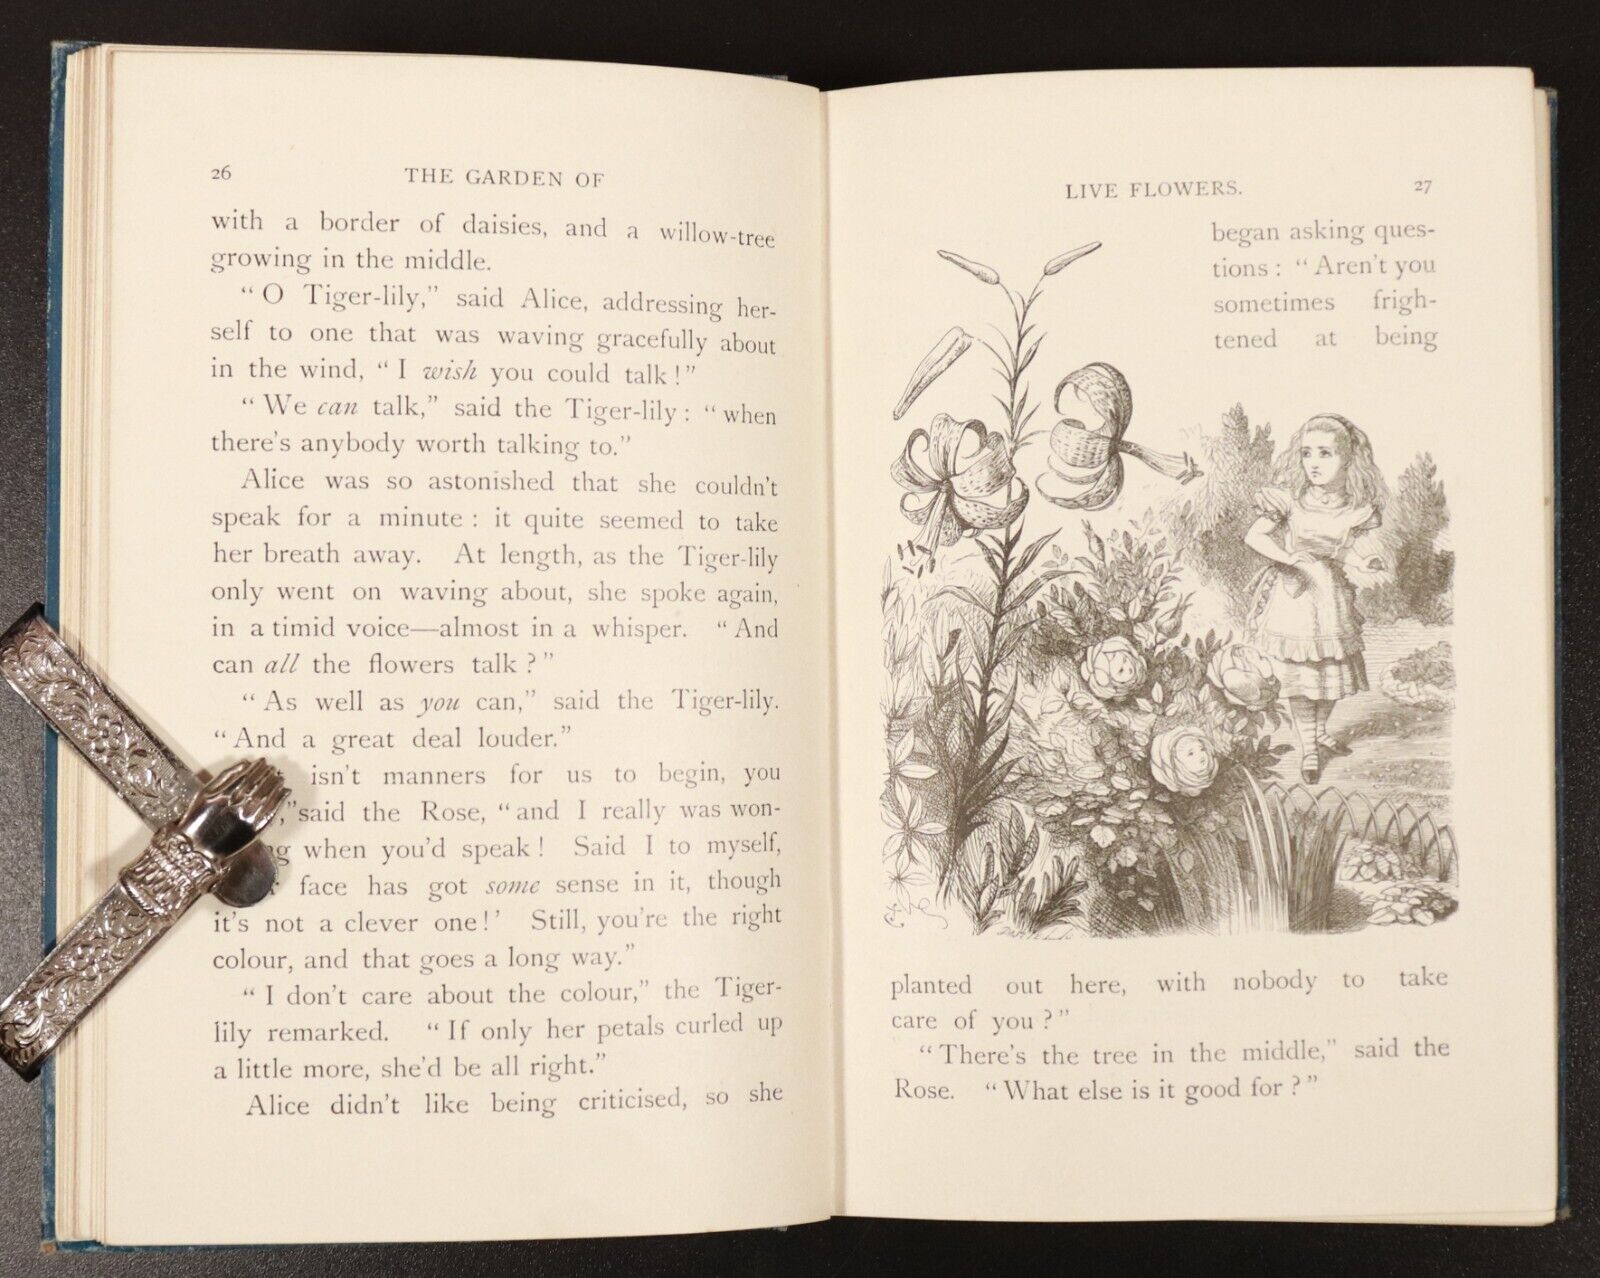 26
THE GARDEN OF
with a border of daisies, and a willow-tree
growing in the middle.
“O Tiger-lily,” said Alice, addressing her-
self to one that was waving gracefully about
in the wind, “I wish you could talk!”
“We can talk,” said the Tiger-lily: “when
there's anybody worth talking to.”
Alice was so astonished that she couldn't
speak for a minute: it quite seemed to take
her breath away. At length, as the Tiger-lily
only went on waving about, she spoke again,
in a timid voice—almost in a whisper. “And
can all the flowers talk?”
“As well as you can,” said the Tiger-lily.
“And a great deal louder.”
isn't manners for us to begin, you
,” said the Rose, “and I really was won-
when you'd speak! Said I to myself,
face has got some sense in it, though
it's not a clever one!’ Still, you're the right
colour, and that goes a long way.”
“I don't care about the colour,” the Tiger-
lily remarked. “If only her petals curled up
a little more, she'd be all right.”
Alice didn't like being criticised, so she
LIVE FLOWERS.
27
began asking ques-
tions: “Aren't you
sometimes frigh-
tened at being
planted out here, with nobody to take
care of you?”
“There's the tree in the middle,” said the
Rose. “What else is it good for?”